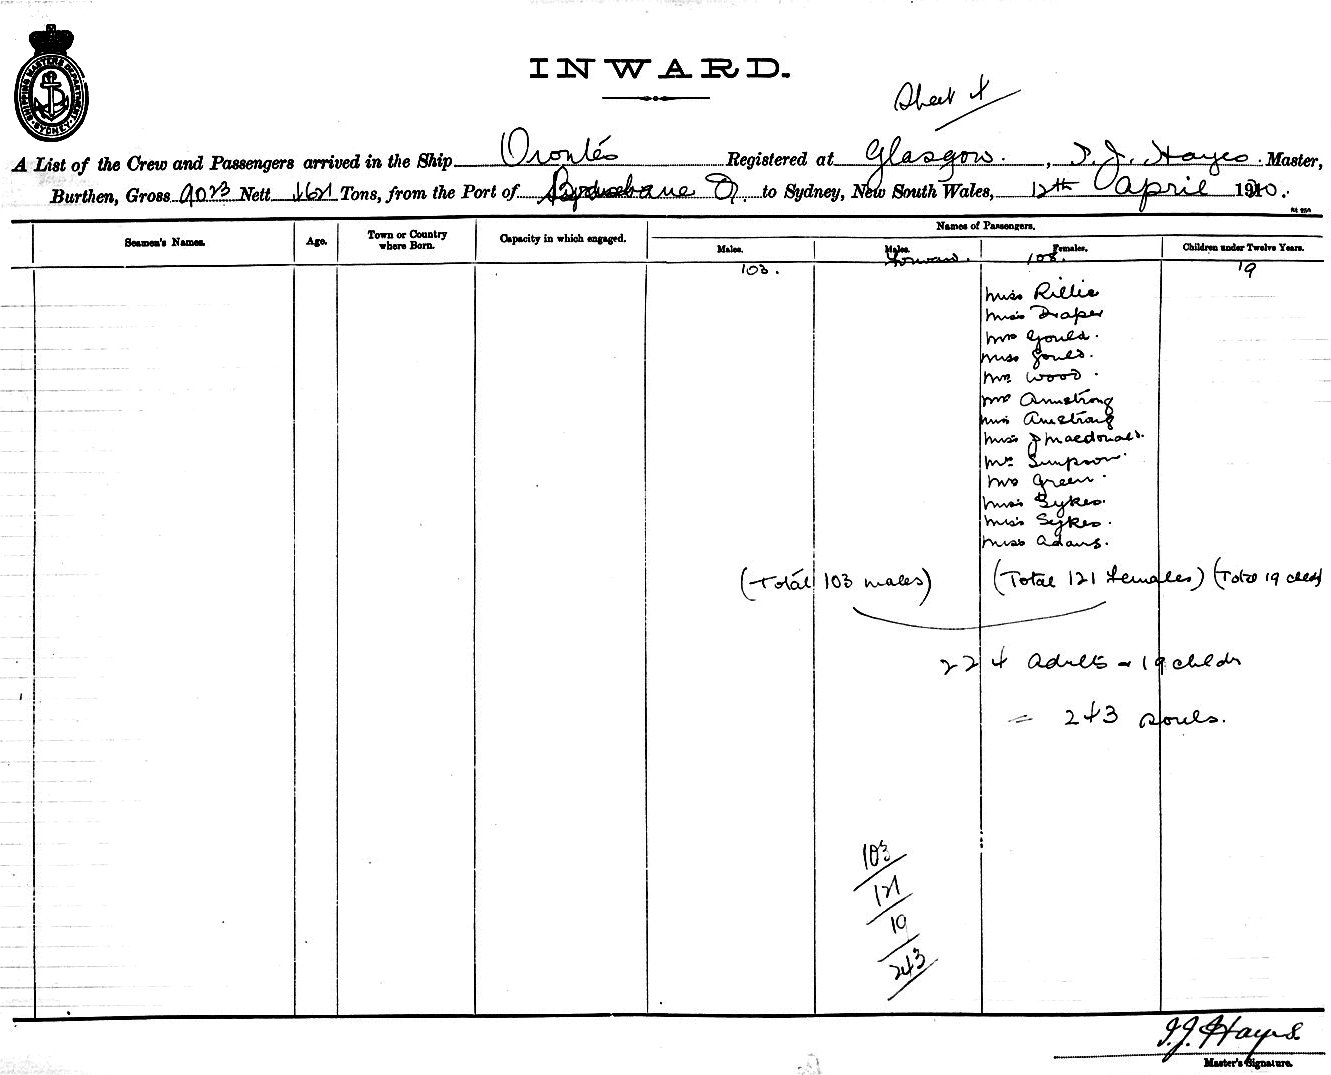 SHIPPING MASTERS DEPARTMENT SYDNEY
INWARD.
Sheet 4
A List of the Crew and Passengers arrived in the Ship Orontes Registered at Glasgow. , J. Hayes Master,
Burthen, Gross 9023 Nett Tons, from the Port of Brisbane Q. to Sydney, New South Wales, 12th april 1910.
Names of Passengers.
Seamen's Names. Age. Town or Country where Born. Capacity in which engaged. Males. Males. Females. Children under Twelve Years.
Forward. 108.
103. 19
Miss Rillie
Miss Draper
Mrs Gould.
Miss Gould.
Mrs Wood.
Mrs Armstrong
Miss Armstrong
Miss J Macdonald.
Mrs Simpson.
Mrs Green.
Miss Sykes.
Miss Sykes.
Miss Adams.
(Total 103 males) (Total 121 females) (Total 19 chldn)
224 adults - 19 childn
= 243 souls.
103
121
19
243
J.J. Hayes.
Master's Signature.